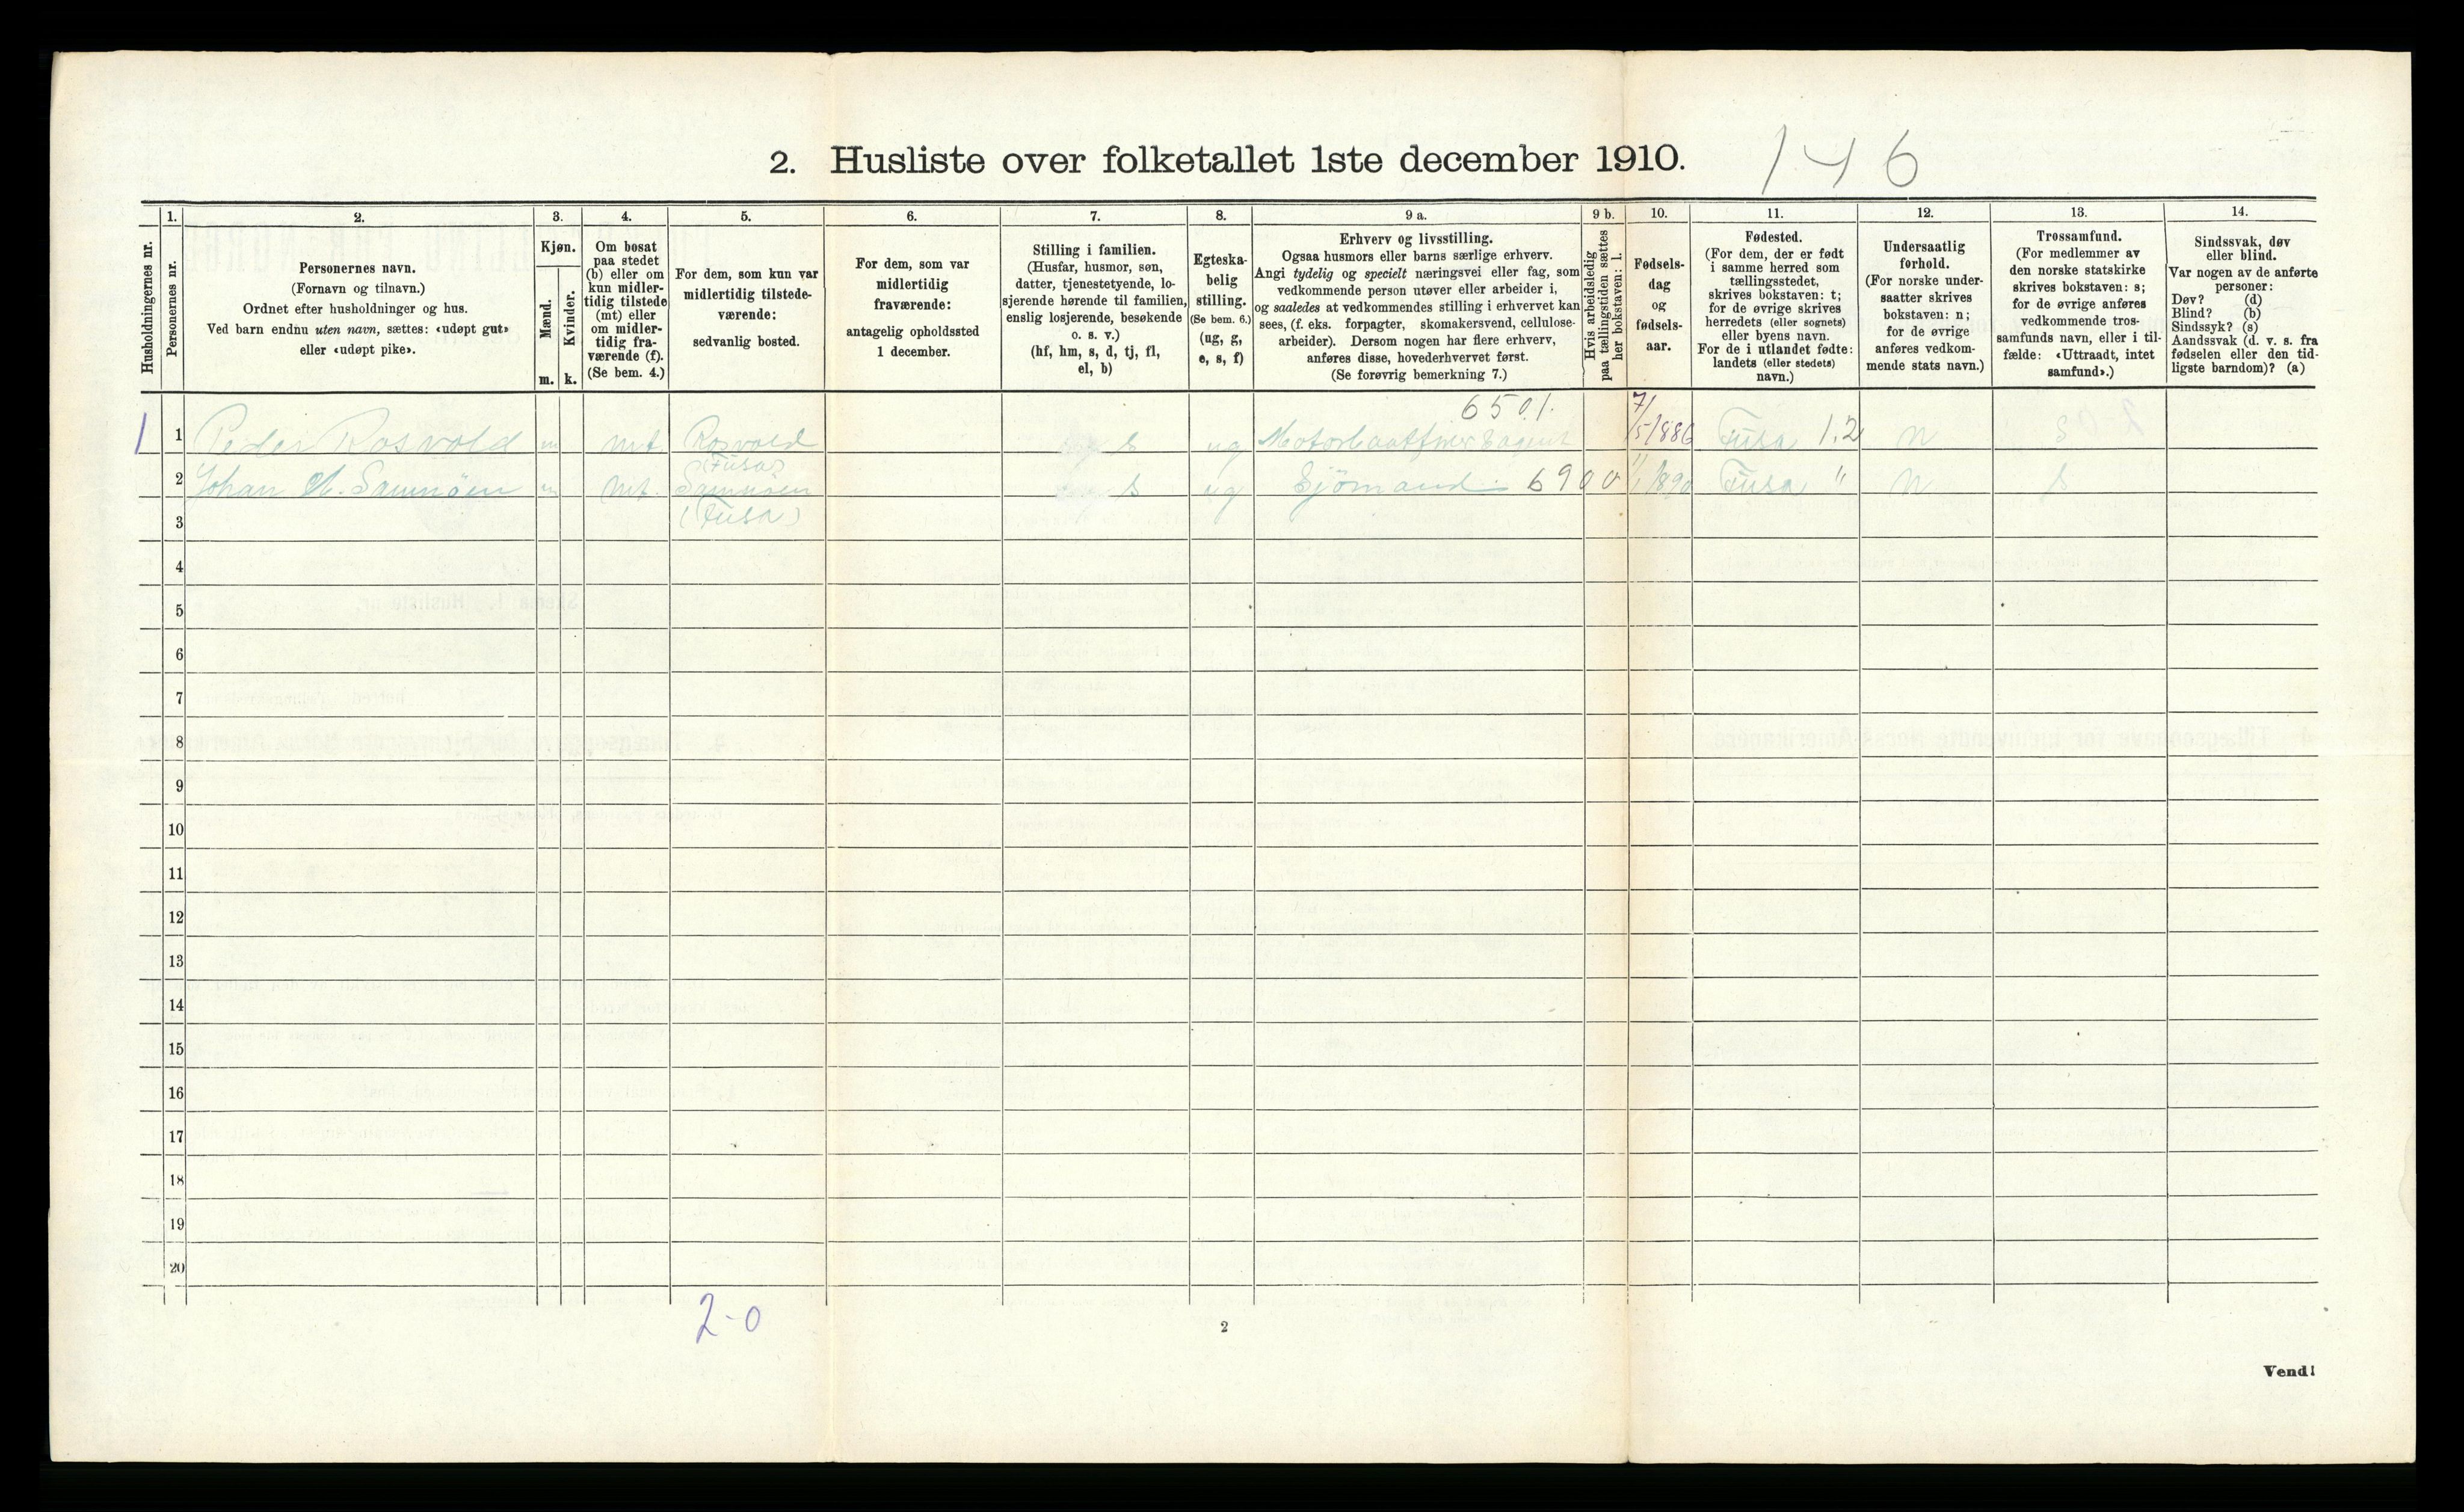 2. Husliste over folketallet 1ste december 1910. 146
Husholdningernes nr.
1.
Personernes nr.
2.
Personernes navn.
(Fornavn og tilnavn.)
Ordnet efter husholdninger og hus.
Ved barn endnu uten navn, sættes: «udøpt gut»
eller «udøpt pike».
3.
Kjøn.
Mænd.
Kvinder.
m. k.
4.
Om bosat
paa stedet
(b) eller om
kun midler-
tidig tilstede
(mt) eller
om midler-
tidig fra-
værende (f).
(Se bem. 4.)
5.
For dem, som kun var
midlertidig tilstede-
værende:
sedvanlig bosted.
6.
For dem, som var
midlertidig
fraværende:
antagelig opholdssted
1 december.
7.
Stilling i familien.
(Husfar, husmor, søn,
datter, tjenestetyende, lo-
sjerende hørende til familien,
enslig losjerende, besøkende
o. s. v.)
(hf, hm, s, d, tj, fl,
el, b)
8.
Egteska-
belig
stilling.
(Se bem. 6.)
(ug, g,
e, s, f)
9 a.
Erhverv og livsstilling.
Ogsaa husmors eller barns særlige erhverv.
Angi tydelig og specielt næringsvei eller fag, som
vedkommende person utøver eller arbeider i,
og saaledes at vedkommendes stilling i erhvervet kan
sees, (f. eks. forpagter, skomakersvend, cellulose-
arbeider). Dersom nogen har flere erhverv,
anføres disse, hovederhvervet først.
(Se forøvrig bemerkning 7.)
9 b.
Hvis arbeidsledig
paa tællingstiden sættes
her bokstaven: l.
10.
Fødsels-
dag
og
fødsels-
aar.
11.
Fødested.
(For dem, der er født
i samme herred som
tællingsstedet,
skrives bokstaven: t;
for de øvrige skrives
herredets (eller sognets)
eller byens navn.
For de i utlandet fødte:
landets (eller stedets)
navn.)
12.
Undersaatlig
forhold.
(For norske under-
saatter skrives
bokstaven: n;
for de øvrige
anføres vedkom-
mende stats navn.)
13.
Trossamfund.
(For medlemmer av
den norske statskirke
skrives bokstaven: s;
for de øvrige anføres
vedkommende tros-
samfunds navn, eller i til-
fælde: «Uttraadt, intet
samfund».)
14.
Sindssvak, døv
eller blind.
Var nogen av de anførte
personer:
Døv? (d)
Blind? (b)
Sindssyk? (s)
Aandssvak (d. v. s. fra
fødselen eller den tid-
ligste barndom)? (a)
6501.
1 1 Peder Rosvold m mt. Rosvold (Fusa) s ug 7/5 1886 Fusa 1.2 n s
2 Johan A. Samnøen m mt. Samnøen (Fusa) s ug Sjömand 6900 1890 Fusa " n s
3
4
5
6
7
8
9
10
11
12
13
14
15
16
17
18
19
20
2-0
2
Vend!